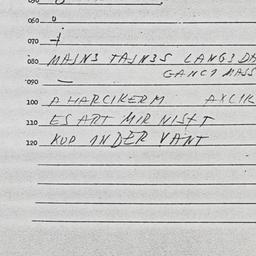 060
070 +
080 MAJN3 TAJN3S LANG3 DA
GANC1 MASS
090 —
100 A HARCIKERM AXCIK
110 ES ART MIR NISHT
120 KOP 1NDER VANT